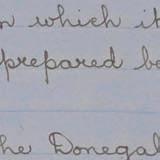 in which it
prepared be
the Donegal